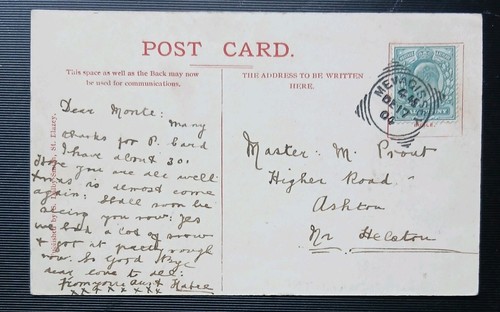 POST CARD.
This space as well as the Back may now
be used for communications.
THE ADDRESS TO BE WRITTEN
HERE.
MEVAGISSEY
DE 17
04
Dear Monte: Many
thanks for P. Card
I have about 30:
Hope you are all well:
Xmas is almost come
again: Shall soon be
seeing you now: Yes
we had a lot of snow
& got it pretty rough
now. So Good Bye
dear love to all:
From your Aunt Mabel
x x x x x x x x
Master: M. Prout
Higher Road
Ashton
Nr Helston
St. Blazey.